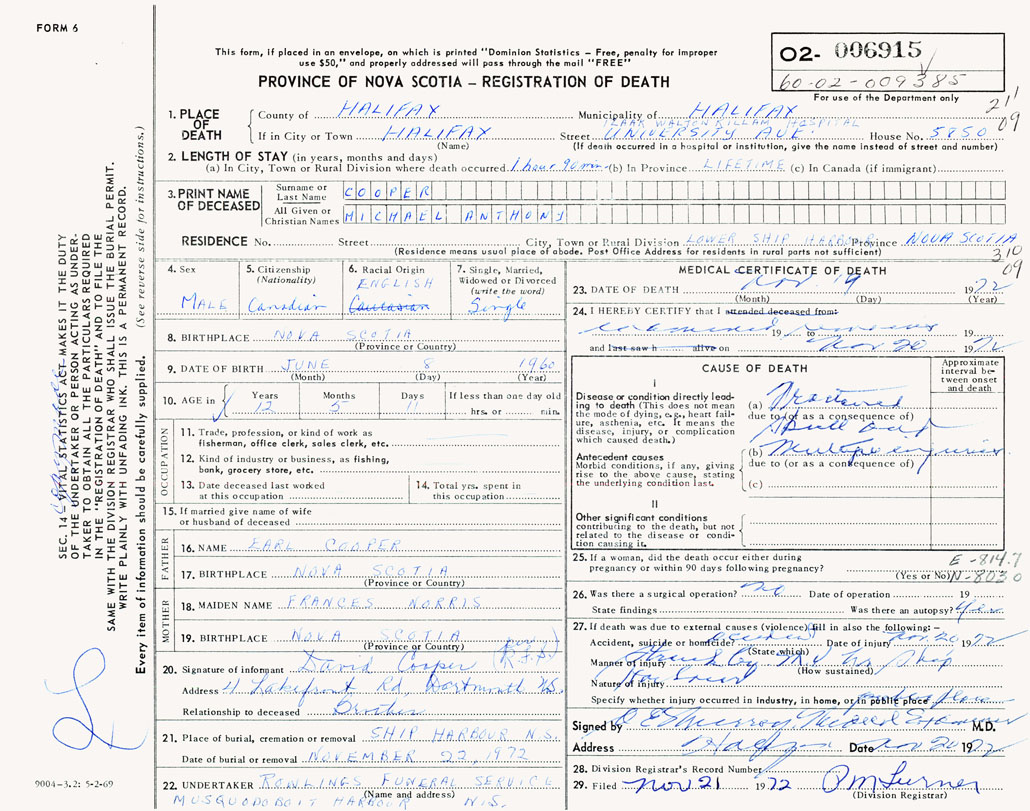 FORM 6
This form, if placed in an envelope, on which is printed "Dominion Statistics – Free, penalty for improper
use $50," and properly addressed will pass through the mail "FREE"
PROVINCE OF NOVA SCOTIA – REGISTRATION OF DEATH
02- 006915
60-02-009385
For use of the Department only
211
09
1. PLACE OF DEATH
County of HALIFAX Municipality of HALIFAX
IZAAK WALTON KILLAM HOSPITAL
If in City or Town HALIFAX Street UNIVERSITY AVE. House No. 5850
(Name) (If death occurred in a hospital or institution, give the name instead of street and number)
2. LENGTH OF STAY (in years, months and days)
(a) In City, Town or Rural Division where death occurred 1 hour min (b) In Province LIFETIME (c) In Canada (if immigrant)
3. PRINT NAME OF DECEASED
Surname or Last Name COOPER
All Given or Christian Names MICHAEL ANTHONY
RESIDENCE No. Street City, Town or Rural Division LOWER SHIP HARBOUR Province NOVA SCOTIA
(Residence means usual place of abode. Post Office Address for residents in rural parts not sufficient)
310
09
4. Sex MALE
5. Citizenship (Nationality) Canadian
6. Racial Origin ENGLISH Caucasian
7. Single, Married, Widowed or Divorced (write the word) Single
8. BIRTHPLACE NOVA SCOTIA
(Province or Country)
9. DATE OF BIRTH JUNE 8 1960
(Month) (Day) (Year)
10. AGE in Years 12 Months 5 Days 11 If less than one day old hrs. or min.
OCCUPATION
11. Trade, profession, or kind of work as
fisherman, office clerk, sales clerk, etc.
12. Kind of industry or business, as fishing,
bank, grocery store, etc.
13. Date deceased last worked at this occupation
14. Total yrs. spent in this occupation
15. If married give name of wife
or husband of deceased
FATHER
16. NAME EARL COOPER
17. BIRTHPLACE NOVA SCOTIA
(Province or Country)
MOTHER
18. MAIDEN NAME FRANCES NORRIS
19. BIRTHPLACE NOVA SCOTIA
(Province or Country)
20. Signature of informant David Cooper
Address 4 Lakefront Rd, Dartmouth N.S.
Relationship to deceased Brother
21. Place of burial, cremation or removal SHIP HARBOUR N.S.
Date of burial or removal NOVEMBER 22, 1972
22. UNDERTAKER ROWLINGS FUNERAL SERVICE
(Name and address)
MUSQUODOBOIT HARBOUR N.S.
MEDICAL CERTIFICATE OF DEATH
23. DATE OF DEATH Nov. 19 1972
(Month) (Day) (Year)
24. I HEREBY CERTIFY that I attended deceased from:
examined remains 19 to 19
and last saw h alive on Nov 20 1972
CAUSE OF DEATH
Approximate interval between onset and death
I
Disease or condition directly leading to death (This does not mean the mode of dying, e.g., heart failure, asthenia, etc. It means the disease, injury, or complication which caused death.)
(a) Fractured
due to (or as a consequence of)
Skull and
Antecedent causes
Morbid conditions, if any, giving rise to the above cause, stating the underlying condition last.
(b) Multiple injuries
due to (or as a consequence of)
(c)
II
Other significant conditions
contributing to the death, but not related to the disease or condition causing it.
25. If a woman, did the death occur either during
pregnancy or within 90 days following pregnancy?
(Yes or No)
E-814.7
N-803.0
26. Was there a surgical operation? no Date of operation 19
State findings Was there an autopsy? Yes
27. If death was due to external causes (violence) fill in also the following:—
Accident, suicide or homicide? accident Date of injury Nov. 20 1972
(State which)
Manner of injury Struck by
(How sustained)
Nature of injury
Specify whether injury occurred in industry, in home, or in public place public place
Signed by Murray Medical Examiner M.D.
Address Halifax Date Nov 20 1972
28. Division Registrar's Record Number
29. Filed Nov 21 1972
(Division Registrar)
SEC. 14 – VITAL STATISTICS ACT MAKES IT THE DUTY
OF THE UNDERTAKER OR PERSON ACTING AS UNDER-
TAKER TO OBTAIN ALL THE PARTICULARS REQUIRED
IN THE "REGISTRATION OF DEATH" AND TO FILE THE
SAME WITH THE DIVISION REGISTRAR WHO SHALL ISSUE THE BURIAL PERMIT.
WRITE PLAINLY WITH UNFADING INK. THIS IS A PERMANENT RECORD.
Every item of information should be carefully supplied. (See reverse side for instructions.)
9004-3.2: 5-2-69